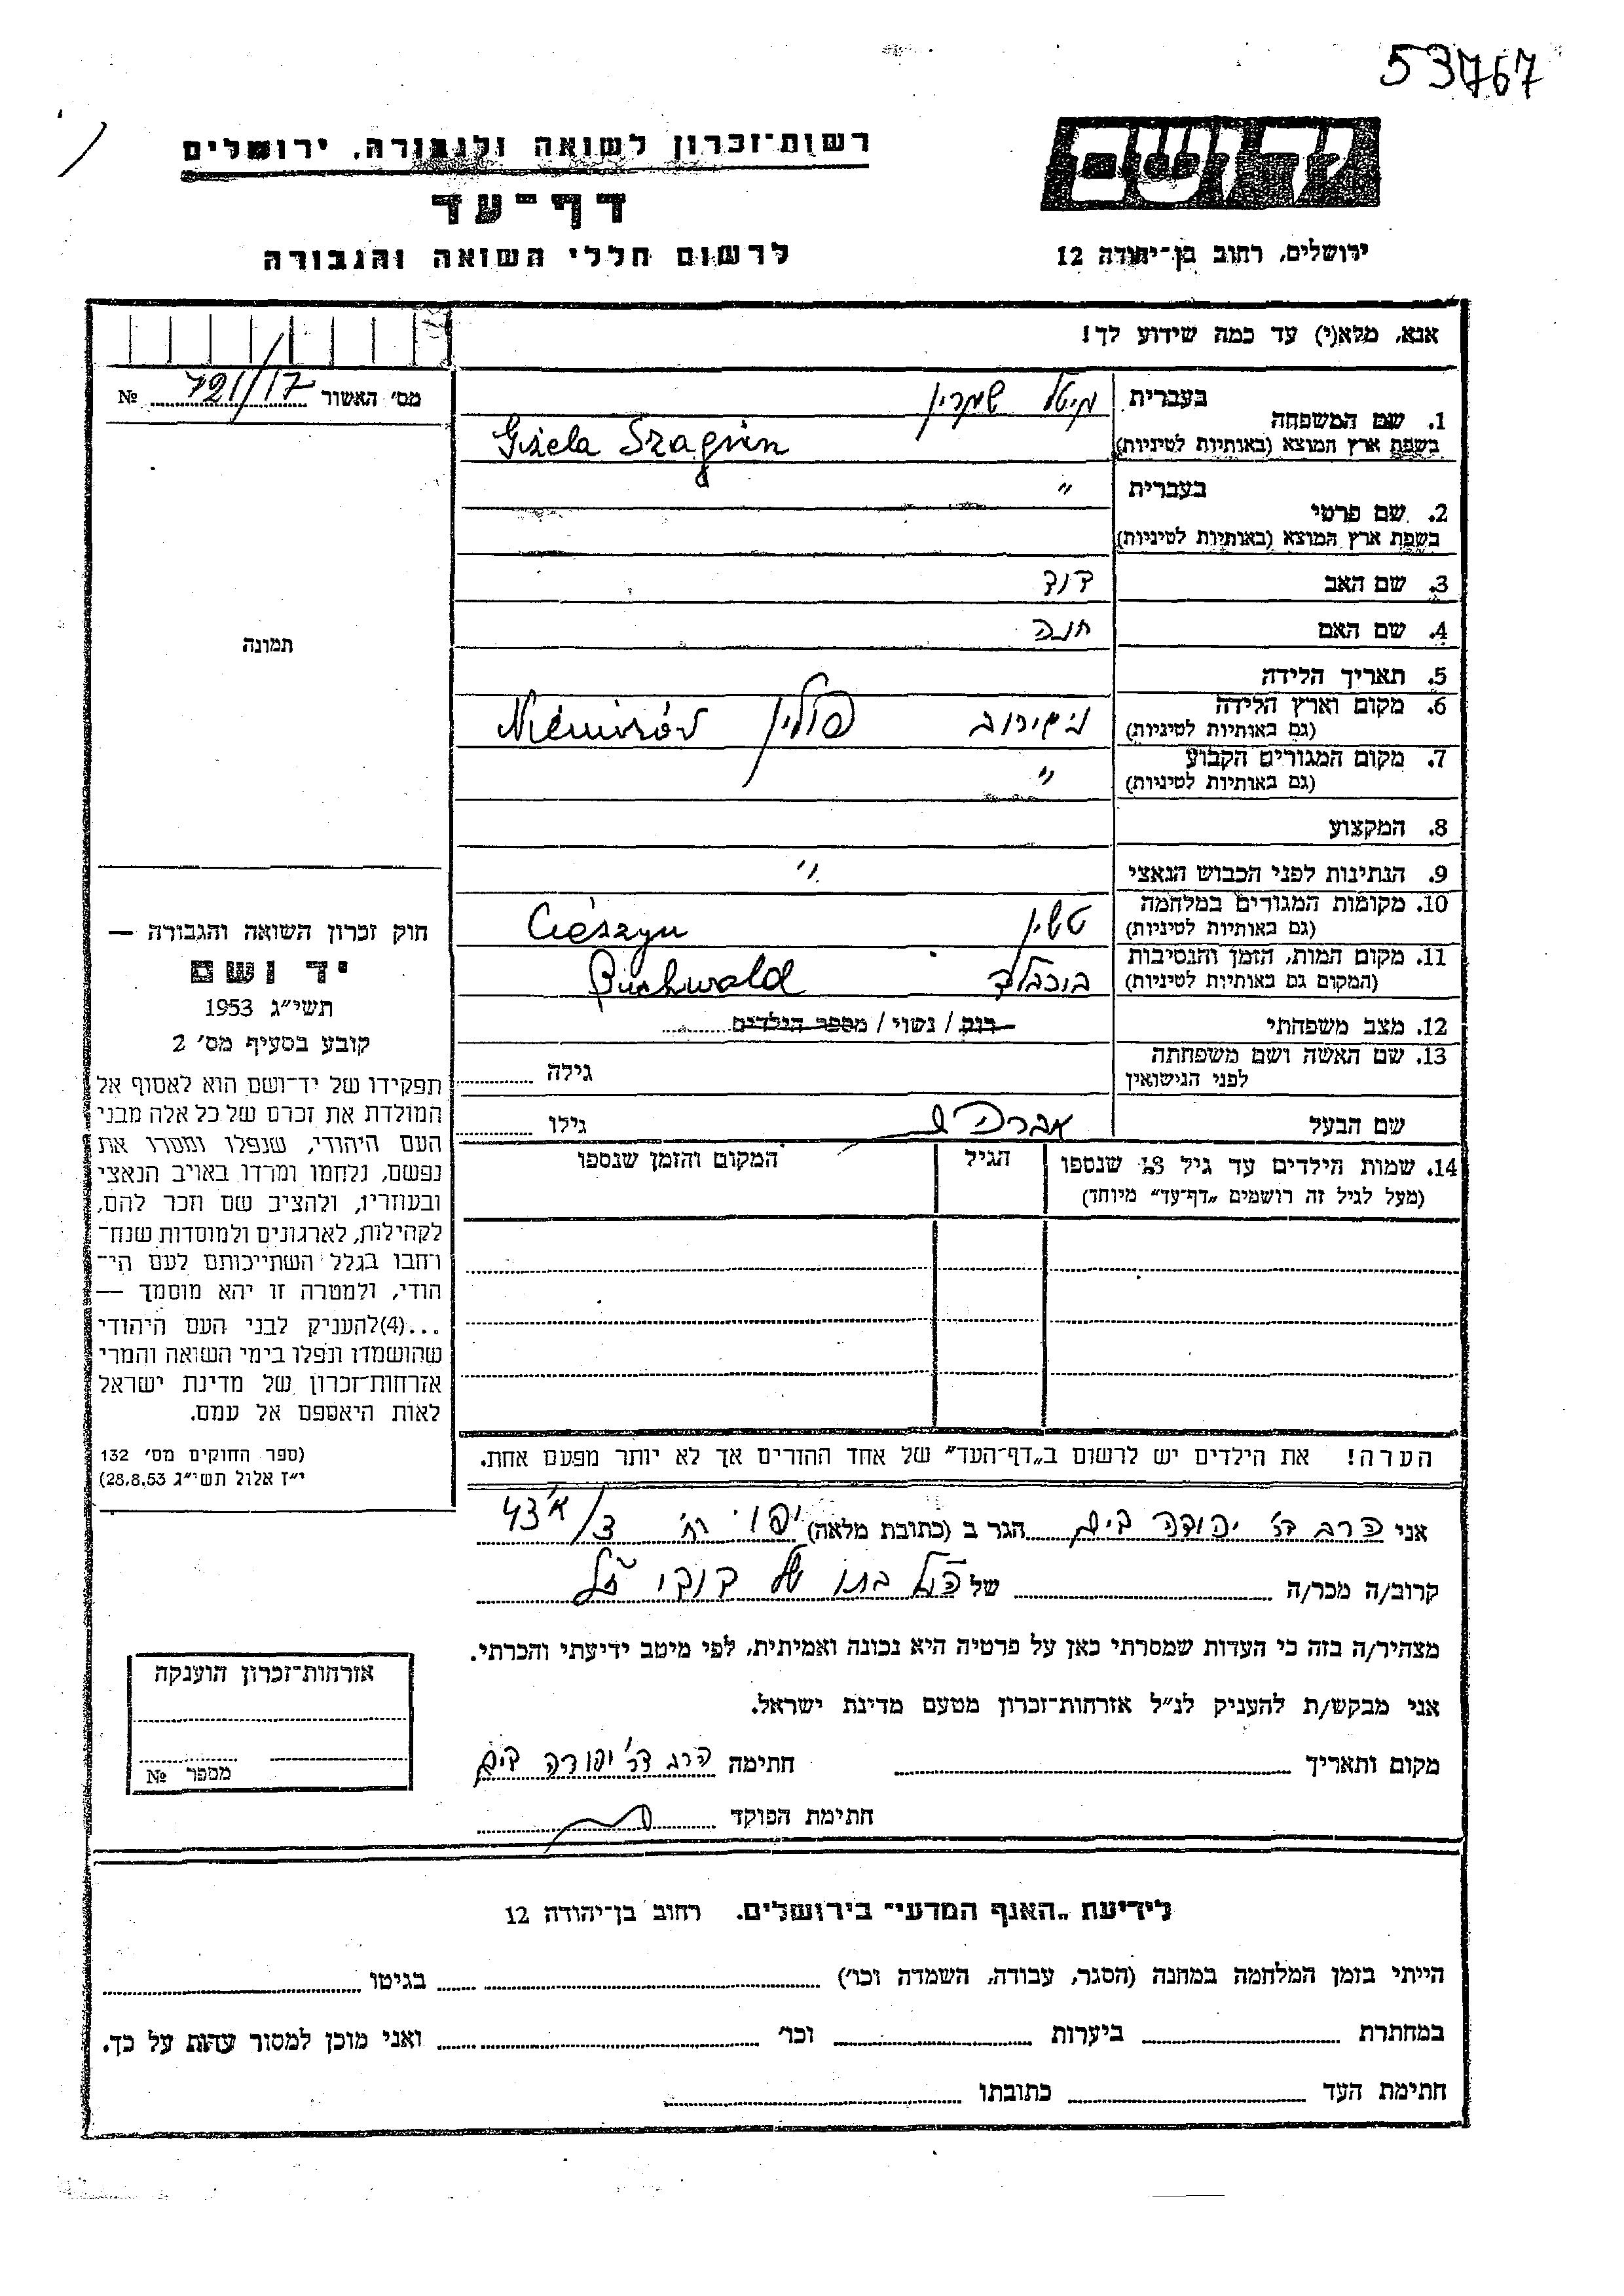 53767
יד ושם
ירושלים, רחוב בן־יהודה 12
רשות־זכרון לשואה ולגבורה, ירושלים
דף־עד
לרשום חללי השואה והגבורה
אנא, מלא(י) עד כמה שידוע לך!
מס׳ האשור 721/17 №
תמונה
בעברית
1. שם המשפחה
בשפת ארץ המוצא (באותיות לטיניות) Gizela
בעברית ״
2. שם פרטי
בשפת ארץ המוצא (באותיות לטיניות)
3. שם האב דוד
4. שם האם חנה
5. תאריך הלידה
6. מקום וארץ הלידה פולין
(גם באותיות לטיניות)
7. מקום המגורים הקבוע ״
(גם באותיות לטיניות)
8. המקצוע
9. הנתינות לפני הכבוש הנאצי ״
10. מקומות המגורים במלחמה טשין Cieszyn
(גם באותיות לטיניות)
11. מקום המות, הזמן והנסיבות בוכבלד Buchwald
(המקום גם באותיות לטיניות)
12. מצב משפחתי רוק / נשוי / מספר הילדים
13. שם האשה ושם משפחתה
לפני הנישואין גילה
שם הבעל אברהם גילו
14. שמות הילדים עד גיל 18 שנספו הגיל המקום והזמן שנספו
(מעל לגיל זה רושמים „דף־עד״ מיוחד)
הערה! את הילדים יש לרשום ב„דף־העד״ של אחד ההורים אך לא יותר מפעם אחת.
חוק זכרון השואה והגבורה —
יד ושם
תשי״ג 1953
קובע בסעיף מס׳ 2
תפקידו של יד־ושם הוא לאסוף אל
המולדת את זכרם של כל אלה מבני
העם היהודי, שנפלו ומסרו את
נפשם, נלחמו ומרדו באויב הנאצי
ובעוזריו, ולהציב שם וזכר להם,
לקהילות, לארגונים ולמוסדות שנח־
רחבו בגלל השתייכותם לעם הי־
הודי, ולמטרה זו יהא מוסמך —
...(4)להעניק לבני העם היהודי
שהושמדו ונפלו בימי השואה והמרי
אזרחות־זכרון של מדינת ישראל
לאות היאספם אל עמם.
(ספר החוקים מס׳ 132
י״ז אלול תשי״ג 28.8.53)
אני הרב דר׳ יהודה הגר ב (כתובת מלאה) יפו
קרוב/ה מכר/ה של
מצהיר/ה בזה כי העדות שמסרתי כאן על פרטיה היא נכונה ואמיתית, לפי מיטב ידיעתי והכרתי.
אני מבקש/ת להעניק לנ״ל אזרחות־זכרון מטעם מדינת ישראל.
מקום ותאריך חתימה הרב דר׳ יהודה
חתימת הפוקד
אזרחות־זכרון הוענקה
מספר №
לידיעת „האגף המדעי״ בירושלים. רחוב בן־יהודה 12
הייתי בזמן המלחמה במחנה (הסגר, עבודה, השמדה וכו׳) בגיטו
במחתרת ביערות וכו׳ ואני מוכן למסור עדות על כך.
חתימת העד כתובתו